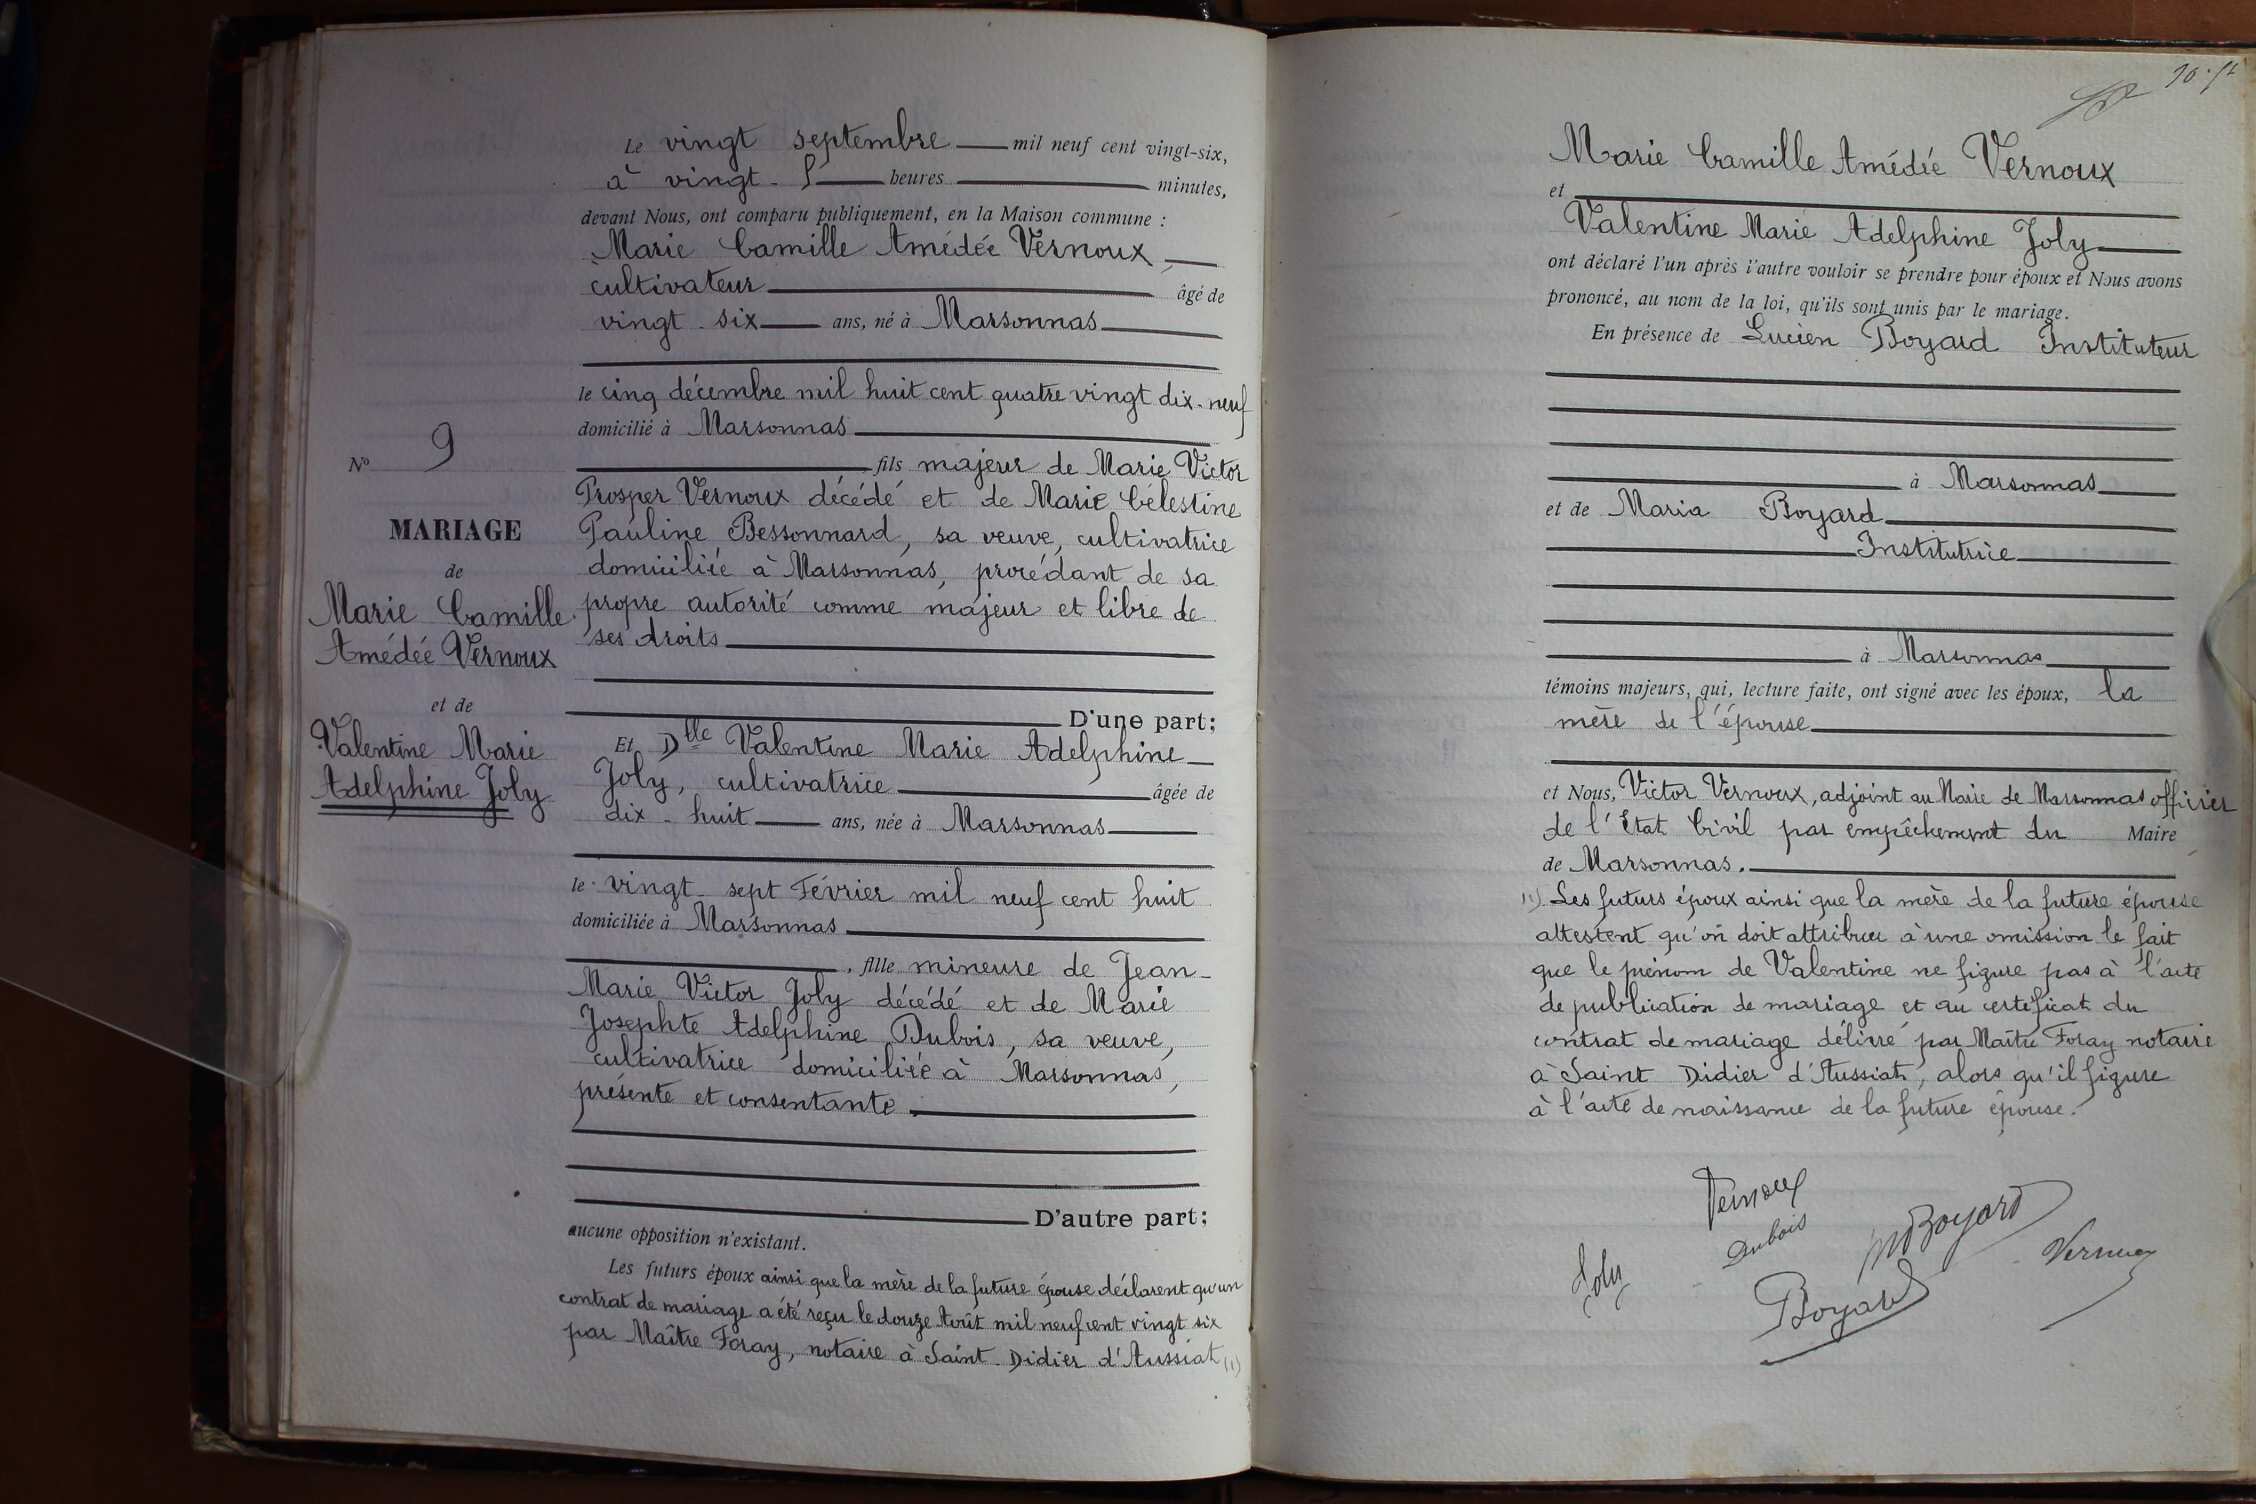 N° 9
MARIAGE
de
Marie Camille
Amédée Vernoux
et de
Valentine Marie
Adelphine Joly
Le vingt septembre mil neuf cent vingt-six,
à vingt heures minutes,
devant Nous, ont comparu publiquement, en la Maison commune :
Marie Camille Amédée Vernoux,
cultivateur âgé de
vingt-six ans, né à Marsonnas
le cinq décembre mil huit cent quatre vingt dix-neuf
domicilié à Marsonnas
fils majeur de Marie Victor
Prosper Vernoux décédé et de Marie Célestine
Pauline Bessonnard, sa veuve, cultivatrice
domiciliée à Marsonnas, procédant de sa
propre autorité comme majeur et libre de
ses droits
D'une part;
Et Dlle Valentine Marie Adelphine
Joly, cultivatrice âgée de
dix-huit ans, née à Marsonnas
le vingt-sept Février mil neuf cent huit
domiciliée à Marsonnas
, fille mineure de Jean-
Marie Victor Joly décédé et de Marie
Josephte Adelphine Dubois, sa veuve,
cultivatrice domiciliée à Marsonnas,
présente et consentante.
D'autre part;
aucune opposition n'existant.
Les futurs époux ainsi que la mère de la future épouse déclarent qu'un
contrat de mariage a été reçu le douze Août mil neuf cent vingt six
par Maître Foray, notaire à Saint-Didier d'Aussiat (1)
Marie Camille Amédée Vernoux
et
Valentine Marie Adelphine Joly
ont déclaré l'un après l'autre vouloir se prendre pour époux et Nous avons
prononcé, au nom de la loi, qu'ils sont unis par le mariage.
En présence de Lucien Boyard Instituteur
à Marsonnas
et de Maria Boyard
Institutrice
à Marsonnas
témoins majeurs, qui, lecture faite, ont signé avec les époux, la
mère de l'épouse
et Nous, Victor Vernoux, adjoint au Maire de Marsonnas officier
de l'État Civil par empêchement du Maire
de Marsonnas.
(1) Les futurs époux ainsi que la mère de la future épouse
attestent qu'on doit attribuer à une omission le fait
que le prénom de Valentine ne figure pas à l'acte
de publication de mariage et au certificat du
contrat de mariage délivré par Maître Foray notaire
à Saint Didier d'Aussiat, alors qu'il figure
à l'acte de naissance de la future épouse.
Vernoux
Dubois
M Boyard
Vernoux
Joly
Boyard